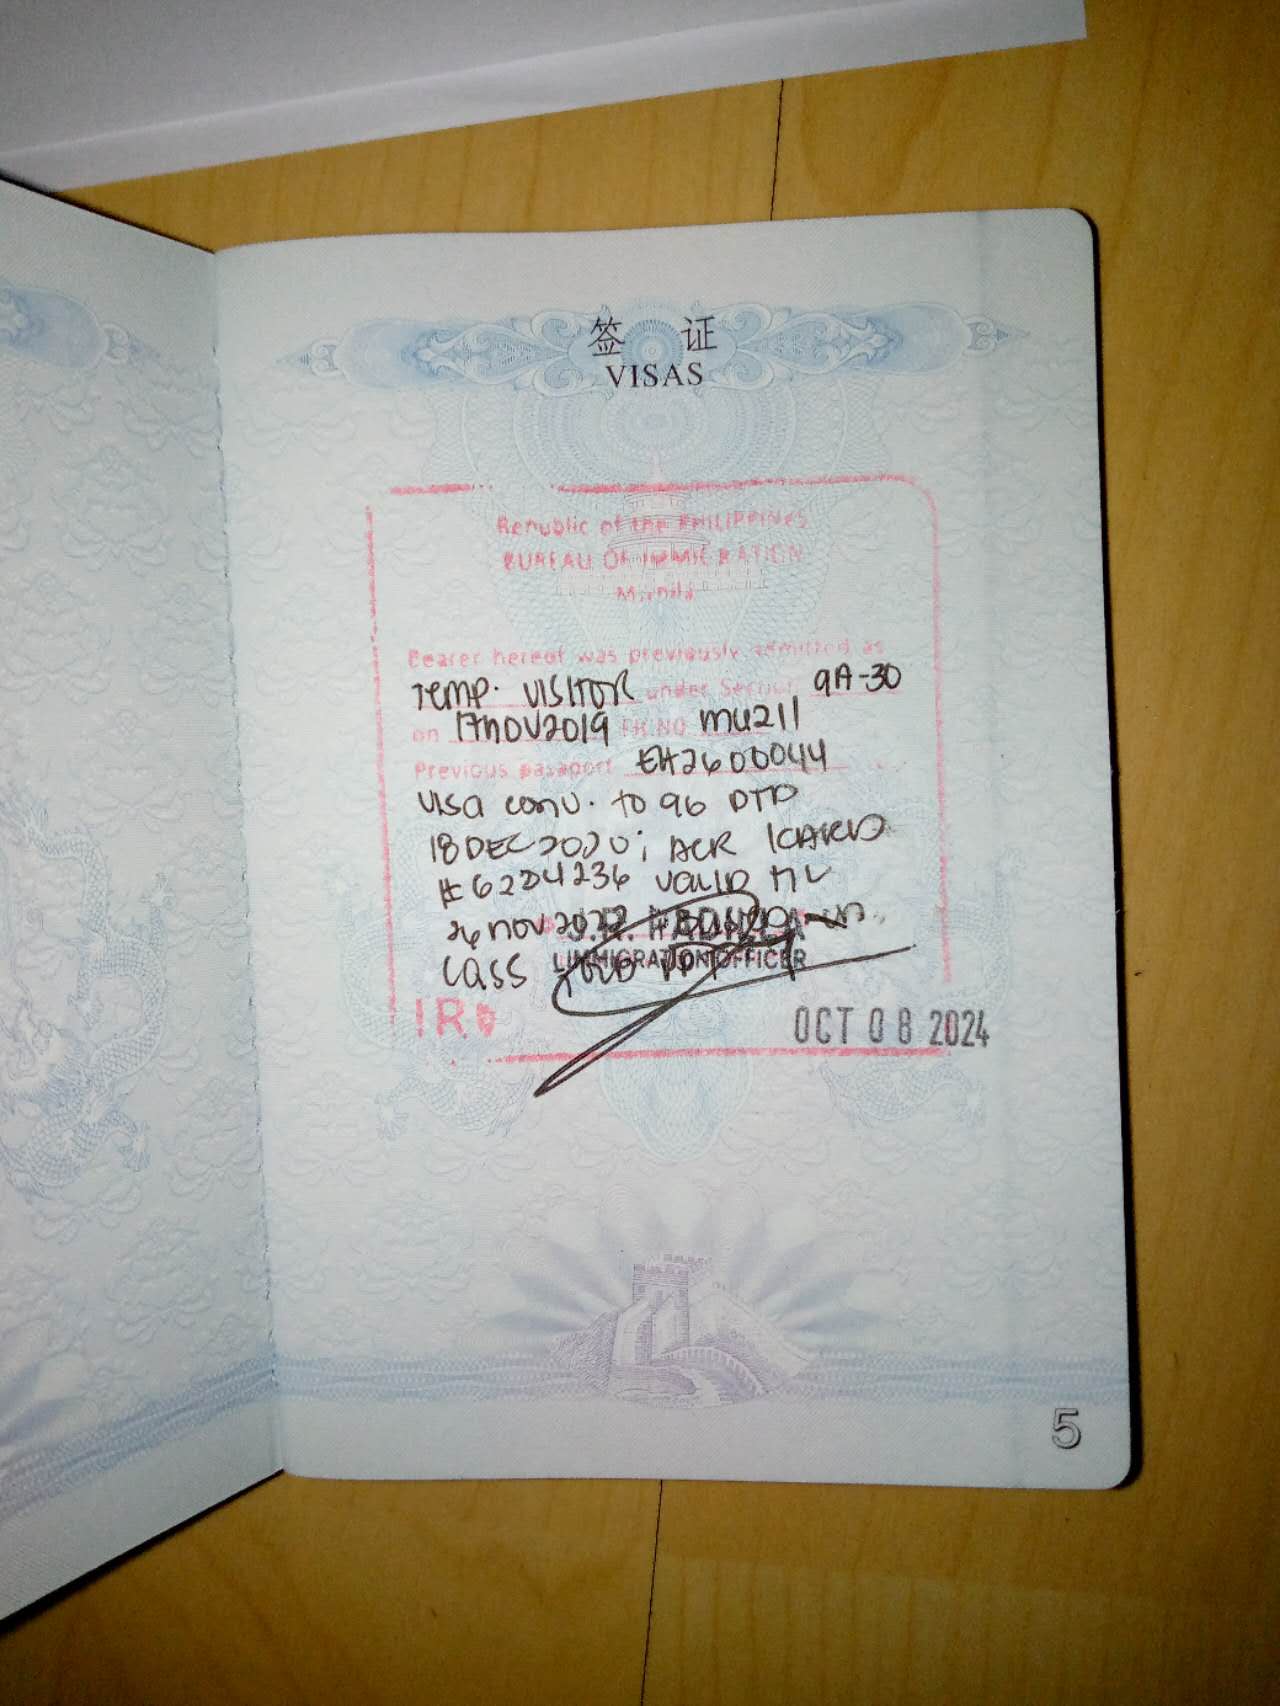 签 证
VISAS
Republic of the PHILIPPINES
BUREAU OF IMMIGRATION
Manila
Bearer hereof was previously admitted as
TEMP. VISITOR under Section 9A-30
on 17NOV2019 FLT.NO MU211
Previous passport
visa conv. to 9G DTD
18DEC2020; ACR ICARD
VALID TIL
IMMIGRATION OFFICER
OCT 08 2024
5